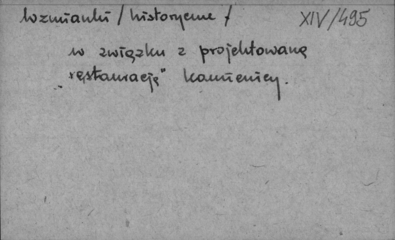 Wzmianki /historyczne/ XIV/495
w związku z projektowaną
„restauracją" kamienicy.